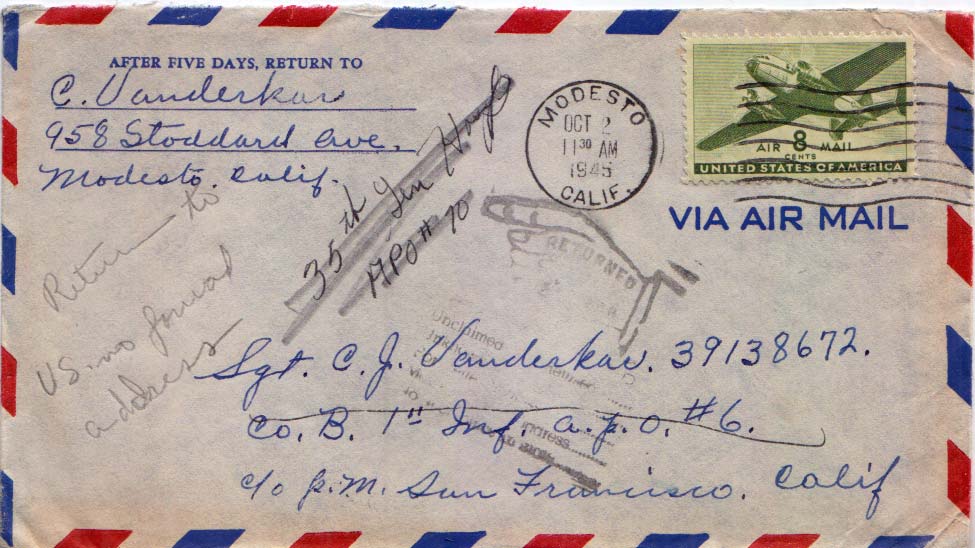 AFTER FIVE DAYS, RETURN TO
C. Vanderkar
958 Stoddard Ave.
Modesto. Calif.
MODESTO
OCT 2
11 30 AM
1945
CALIF.
AIR 8 MAIL
CENTS
UNITED STATES OF AMERICA
VIA AIR MAIL
35th Gen Hosp
APO # 70
RETURNED
Return to
US. no forward
address
Unclaimed
Sgt. C. J. Vanderkar. 39138672.
Co. B. 1st Inf. a.p.o. #6.
c/o p.m. San Francisco. Calif